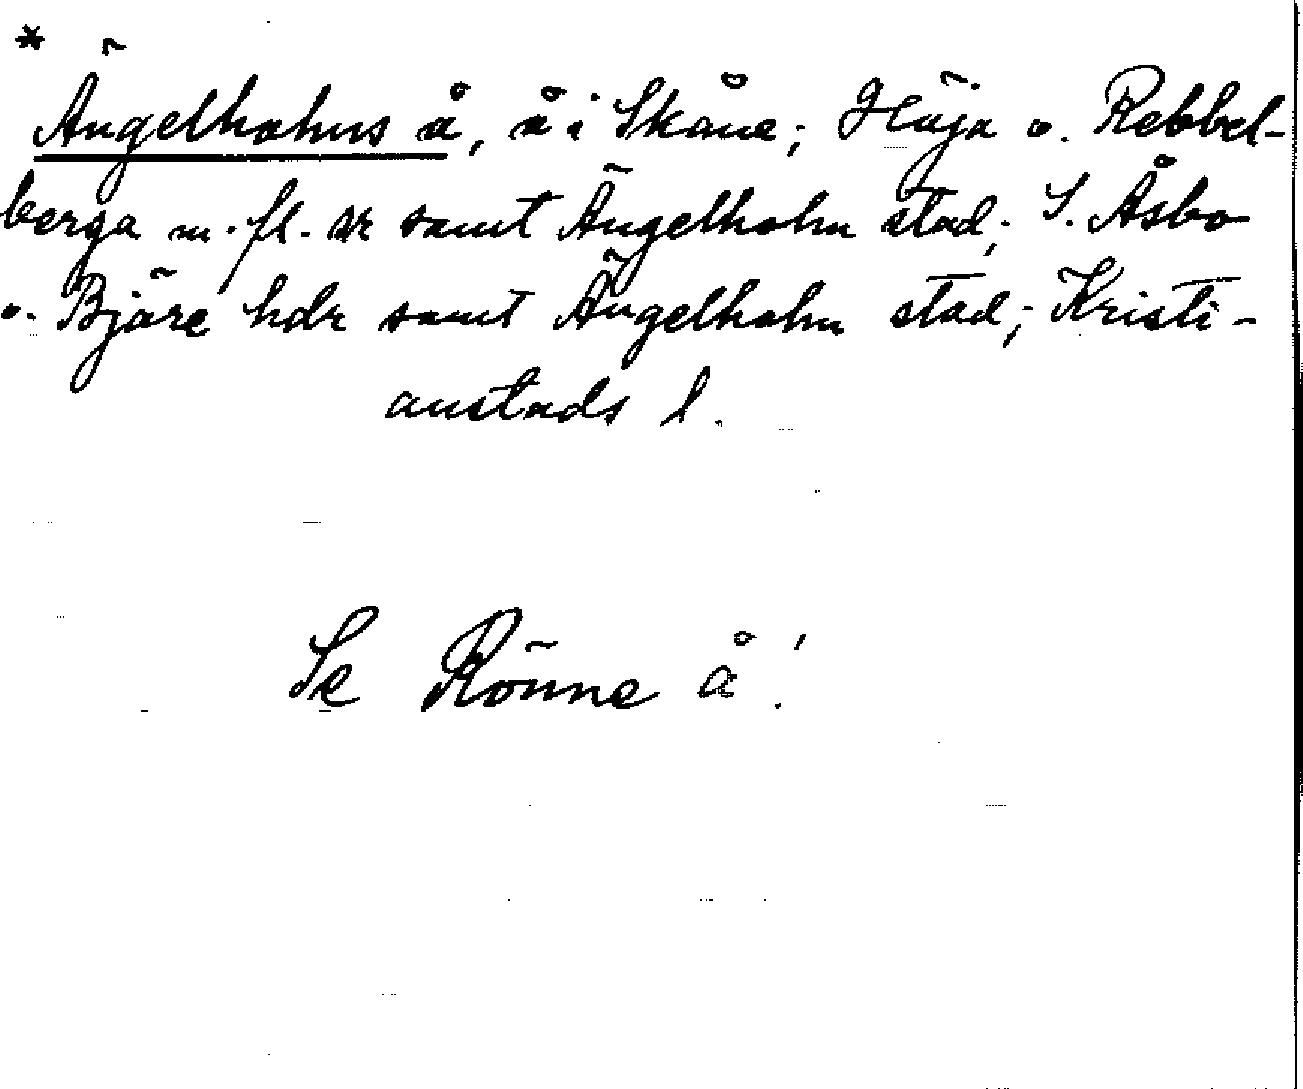 *
Ängelholms å, å i Skåne; Höja o. Rebbel-
berga m. fl. snr samt Ängelholm stad; S. Åsbo
o. Bjäre hdr samt Ängelholm stad; Kristi-
anstads l.
Se Rönne å!